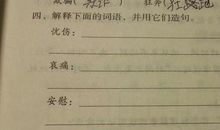 四、解释下面的词语，并用它们造句。
忧伤：
哀痛：
安慰：